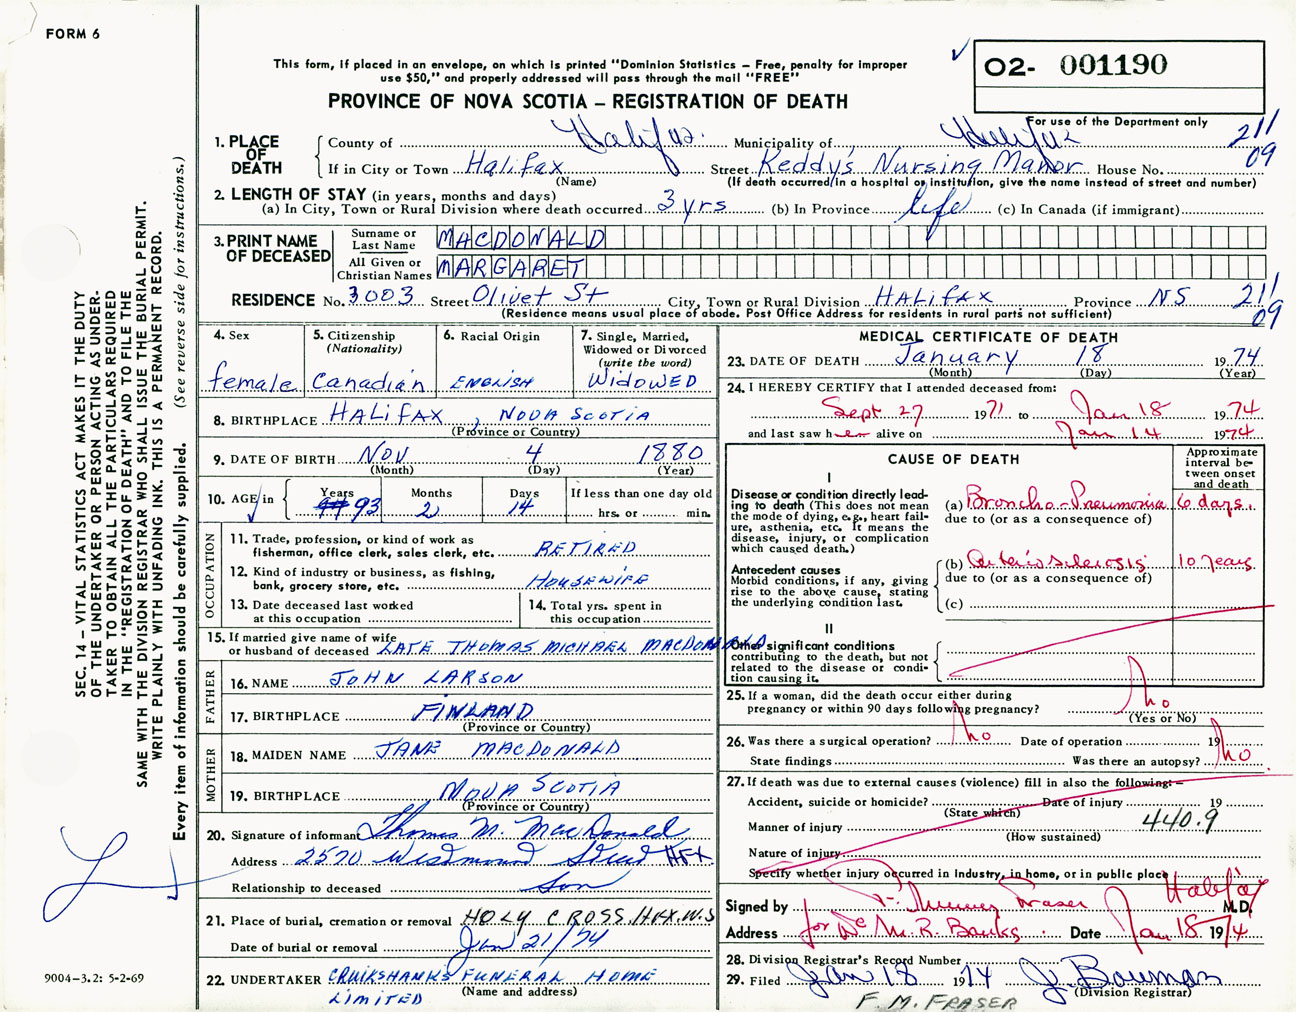 FORM 6
This form, if placed in an envelope, on which is printed "Dominion Statistics – Free, penalty for improper
use $50," and properly addressed will pass through the mail "FREE"
PROVINCE OF NOVA SCOTIA – REGISTRATION OF DEATH
02- 001190
For use of the Department only
211
09
1. PLACE OF DEATH
County of Halifax. Municipality of Halifax
If in City or Town Halifax Street Keddy's Nursing Manor House No.
(Name) (If death occurred in a hospital or institution, give the name instead of street and number)
2. LENGTH OF STAY (in years, months and days)
(a) In City, Town or Rural Division where death occurred 3 yrs (b) In Province life (c) In Canada (if immigrant)
3. PRINT NAME OF DECEASED
Surname or Last Name MACDONALD
All Given or Christian Names MARGARET
RESIDENCE No. 3003 Street Olivet St City, Town or Rural Division HALIFAX Province NS
(Residence means usual place of abode. Post Office Address for residents in rural parts not sufficient)
211
09
4. Sex
female
5. Citizenship
(Nationality)
Canadian
6. Racial Origin
ENGLISH
7. Single, Married,
Widowed or Divorced
(write the word)
WIDOWED
8. BIRTHPLACE HALIFAX, NOVA SCOTIA
(Province or Country)
9. DATE OF BIRTH NOV 4 1880
(Month) (Day) (Year)
10. AGE in
Years 93
Months 2
Days 14
If less than one day old
hrs. or min.
OCCUPATION
11. Trade, profession, or kind of work as
fisherman, office clerk, sales clerk, etc. RETIRED
12. Kind of industry or business, as fishing,
bank, grocery store, etc. HOUSEWIFE
13. Date deceased last worked
at this occupation
14. Total yrs. spent in
this occupation
15. If married give name of wife
or husband of deceased LATE THOMAS MICHAEL MACDONALD
FATHER
16. NAME JOHN LARSON
17. BIRTHPLACE FINLAND
(Province or Country)
MOTHER
18. MAIDEN NAME JANE MACDONALD
19. BIRTHPLACE NOVA SCOTIA
(Province or Country)
20. Signature of informant Thomas M. MacDonald
Address 2570 Westmount Street HFX
Relationship to deceased Son
21. Place of burial, cremation or removal HOLY CROSS. HFX. N.S
Date of burial or removal Jan 21/74
22. UNDERTAKER CRUIKSHANKS FUNERAL HOME
(Name and address)
LIMITED
MEDICAL CERTIFICATE OF DEATH
23. DATE OF DEATH January 18 1974
(Month) (Day) (Year)
24. I HEREBY CERTIFY that I attended deceased from:
Sept 27 1971 to Jan 18 1974
and last saw her alive on Jan 14 1974
CAUSE OF DEATH
Approximate
interval be-
tween onset
and death
I
Disease or condition directly lead-
ing to death (This does not mean
the mode of dying, e.g., heart fail-
ure, asthenia, etc. It means the
disease, injury, or complication
which caused death.)
(a) Broncho-Pneumonia 6 days.
due to (or as a consequence of)
Antecedent causes
Morbid conditions, if any, giving
rise to the above cause, stating
the underlying condition last.
(b) Arteriosclerosis 10 years
due to (or as a consequence of)
(c)
II
Other significant conditions
contributing to the death, but not
related to the disease or condi-
tion causing it.
25. If a woman, did the death occur either during
pregnancy or within 90 days following pregnancy? no
(Yes or No)
26. Was there a surgical operation? no Date of operation 19
State findings Was there an autopsy? no
27. If death was due to external causes (violence) fill in also the following:–
Accident, suicide or homicide? Date of injury 19
(State which)
Manner of injury 440.9
(How sustained)
Nature of injury
Specify whether injury occurred in industry, in home, or in public place
Signed by Fraser Halifax M.D.
Address for Dr M. R. Banks. Date Jan 18 1974
28. Division Registrar's Record Number
29. Filed Jan 18 1974 J. Bauman
(Division Registrar)
F. M. FRASER
SEC. 14 – VITAL STATISTICS ACT MAKES IT THE DUTY
OF THE UNDERTAKER OR PERSON ACTING AS UNDER-
TAKER TO OBTAIN ALL THE PARTICULARS REQUIRED
IN THE "REGISTRATION OF DEATH" AND TO FILE THE
SAME WITH THE DIVISION REGISTRAR WHO SHALL ISSUE THE BURIAL PERMIT.
WRITE PLAINLY WITH UNFADING INK. THIS IS A PERMANENT RECORD.
Every item of information should be carefully supplied. (See reverse side for instructions.)
9004-3.2: 5-2-69